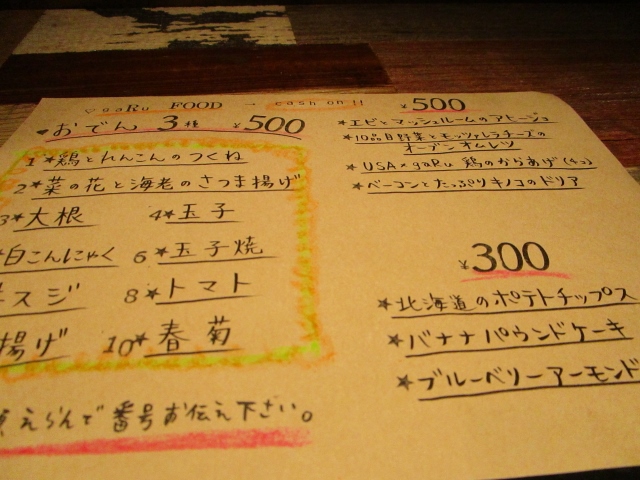 gaRu FOOD → cash on!!
おでん 3種 ¥500
1*鶏とれんこんのつくね
2*菜の花と海老のさつま揚げ
3*大根 4*玉子
*白こんにゃく 6*玉子焼
スジ 8*トマト
揚げ 10*春菊
えらんで番号お伝え下さい。
¥500
*エビとマッシュルームのアヒージョ
*10品目野菜とモッツァレラチーズの
オープンオムレツ
*USA×gaRu 鶏のからあげ(4コ)
*ベーコンとたっぷりキノコのドリア
¥300
*北海道のポテトチップス
*バナナパウンドケーキ
*ブルーベリーアーモンド